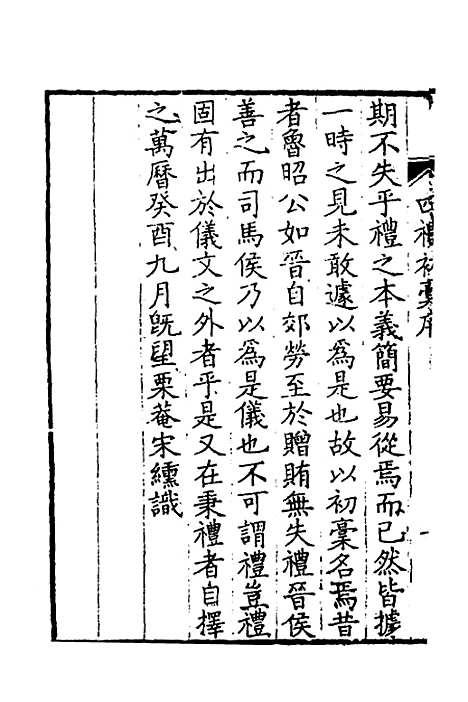 四禮初稾序
期不失乎禮之本義簡要易從焉而已然皆據
一時之見未敢遽以爲是也故以初稾名焉昔
者魯昭公如晉自郊勞至於贈賄無失禮晉侯
善之而司馬侯乃以爲是儀也不可謂禮豈禮
固有出於儀文之外者乎是又在秉禮者自擇
之萬曆癸酉九月旣望栗菴宋纁識